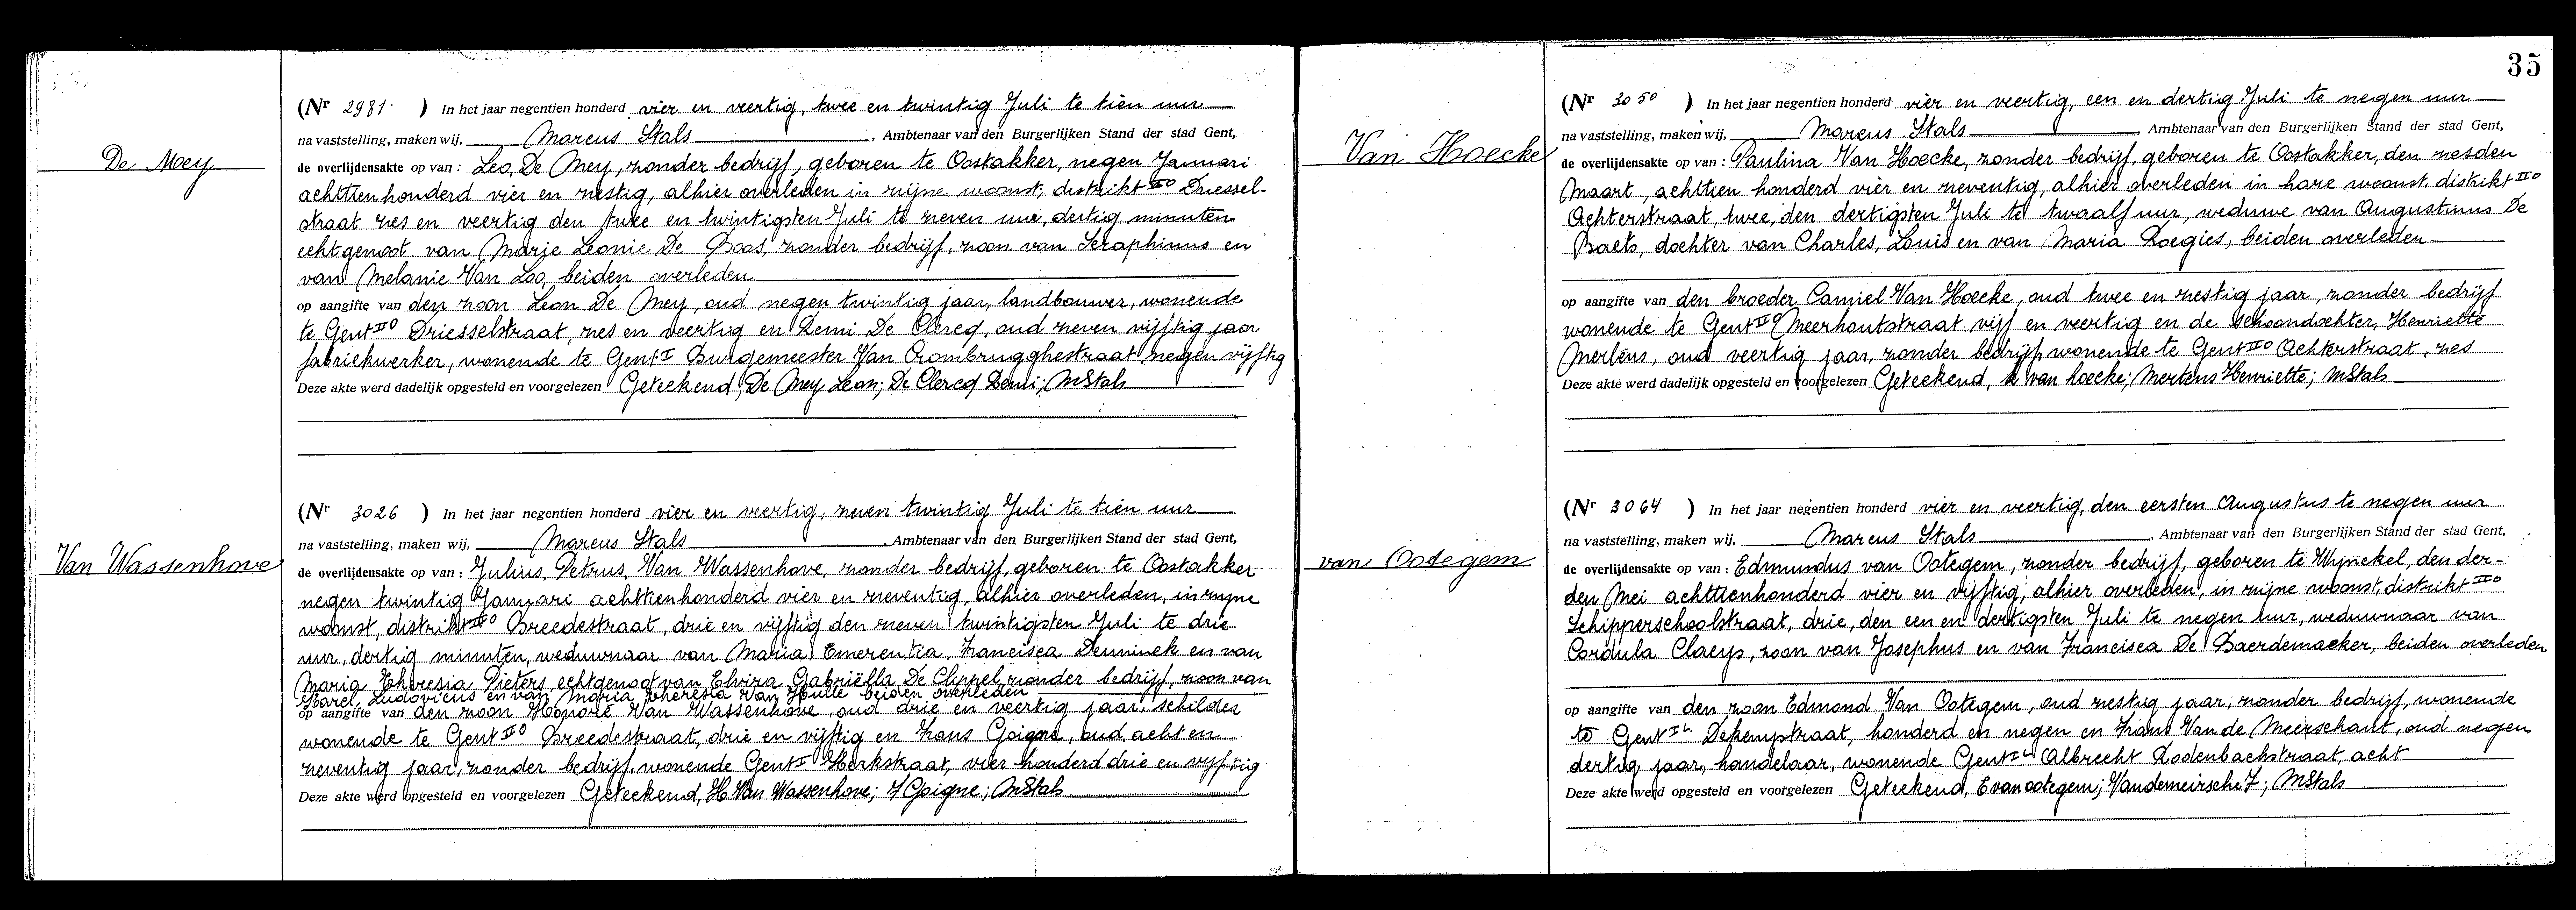 De Mey
(Nr 2981 ) In het jaar negentien honderd vier en veertig, twee en twintig Juli te tien uur
na vaststelling, maken wij, Marcus Stals, Ambtenaar van den Burgerlijken Stand der stad Gent,
de overlijdensakte op van : Leo, De Mey, zonder bedrijf, geboren te Oostakker, negen Januari
achttienhonderd vier en zestig, alhier overleden in zijne woonst, distrikt IIO Driessel-
straat zes en veertig den twee en twintigsten Juli te zeven uur, dertig minuten
echtgenoot van Marie Leonie De Boos, zonder bedrijf, zoon van Seraphinus en
van Melanie Van Loo, beiden overleden
op aangifte van den zoon Leon De Mey, oud negen twintig jaar, landbouwer, wonende
te Gent IIO Driesselstraat, zes en veertig en Remi De Clercq, oud zeven vijftig jaar
fabriekwerker, wonende te Gent I Burgemeester Van Crombrugghestraat negen vijftig
Deze akte werd dadelijk opgesteld en voorgelezen Geteekend, De Mey Leon; De Clercq Remi; MStals
Van Wassenhove
(Nr 3026 ) In het jaar negentien honderd vier en veertig, zeven twintig Juli te tien uur
na vaststelling, maken wij, Marcus Stals, Ambtenaar van den Burgerlijken Stand der stad Gent,
de overlijdensakte op van : Julius, Petrus, Van Wassenhove, zonder bedrijf, geboren te Oostakker
negen twintig Januari achttienhonderd vier en zeventig, alhier overleden, in zijne
woonst, distrikt IIO Breedestraat, drie en vijftig den zeven twintigsten Juli te drie
uur, dertig minuten, weduwnaar van Maria Emerentia, Francisca Demuinck en van
Maria Theresia Pieters, echtgenoot van Elvira Gabriëlla De Clippel, zonder bedrijf, zoon van
Karel, Ludovicus en van Maria Theresia Van Hulle beiden overleden
op aangifte van den zoon Honoré Van Wassenhove, oud drie en veertig jaar, schilder
wonende te Gent IIO Breedestraat, drie en vijftig en Frans Goigne, oud acht en
zeventig jaar, zonder bedrijf, wonende Gent I Kerkstraat, vier honderd drie en vijftig
Deze akte werd opgesteld en voorgelezen Geteekend, H Van Wassenhove; F Goigne; MStals
35
Van Hoecke
(Nr 3050 ) In het jaar negentien honderd vier en veertig, een en dertig Juli te negen uur
na vaststelling, maken wij, Marcus Stals, Ambtenaar van den Burgerlijken Stand der stad Gent,
de overlijdensakte op van : Paulina Van Hoecke, zonder bedrijf, geboren te Oostakker, den zesden
Maart, achttien honderd vier en zeventig, alhier overleden in hare woonst, distrikt IIO
Achterstraat, twee, den dertigsten Juli te twaalf uur, weduwe van Augustinus De
Baets, dochter van Charles, Louis en van Maria Roegies, beiden overleden
op aangifte van den broeder Camiel Van Hoecke, oud twee en zestig jaar, zonder bedrijf
wonende te Gent IIO Meerhoutstraat vijf en veertig en de schoondochter, Henriette
Mertens, oud veertig jaar, zonder bedrijf, wonende te Gent IIO Achterstraat, zes
Deze akte werd dadelijk opgesteld en voorgelezen Geteekend, k van hoecke; Mertens Henriette; MStals
van Ootegem
(Nr 3064 ) In het jaar negentien honderd vier en veertig, den eersten Augustus te negen uur
na vaststelling, maken wij, Marcus Stals, Ambtenaar van den Burgerlijken Stand der stad Gent,
de overlijdensakte op van : Edmundus van Ootegem, zonder bedrijf, geboren te Wynckel, den der-
den Mei achttienhonderd vier en vijftig, alhier overleden, in zijne woonst, distrikt IIO
Schipperschoolstraat, drie, den een en dertigsten Juli te negen uur, weduwnaar van
Cordula Claeys, zoon van Josephus en van Francisca De Baerdemaeker, beiden overleden
op aangifte van den zoon Edmond Van Ootegem, oud zestig jaar, zonder bedrijf, wonende
te Gent IL Dekenijstraat, honderd en negen en Frans Van de Meerschaut, oud negen
dertig jaar, handelaar, wonende Gent IL Albrecht Rodenbachstraat, acht
Deze akte werd opgesteld en voorgelezen Geteekend, E van ootegem; Vandemeirsche F; MStals